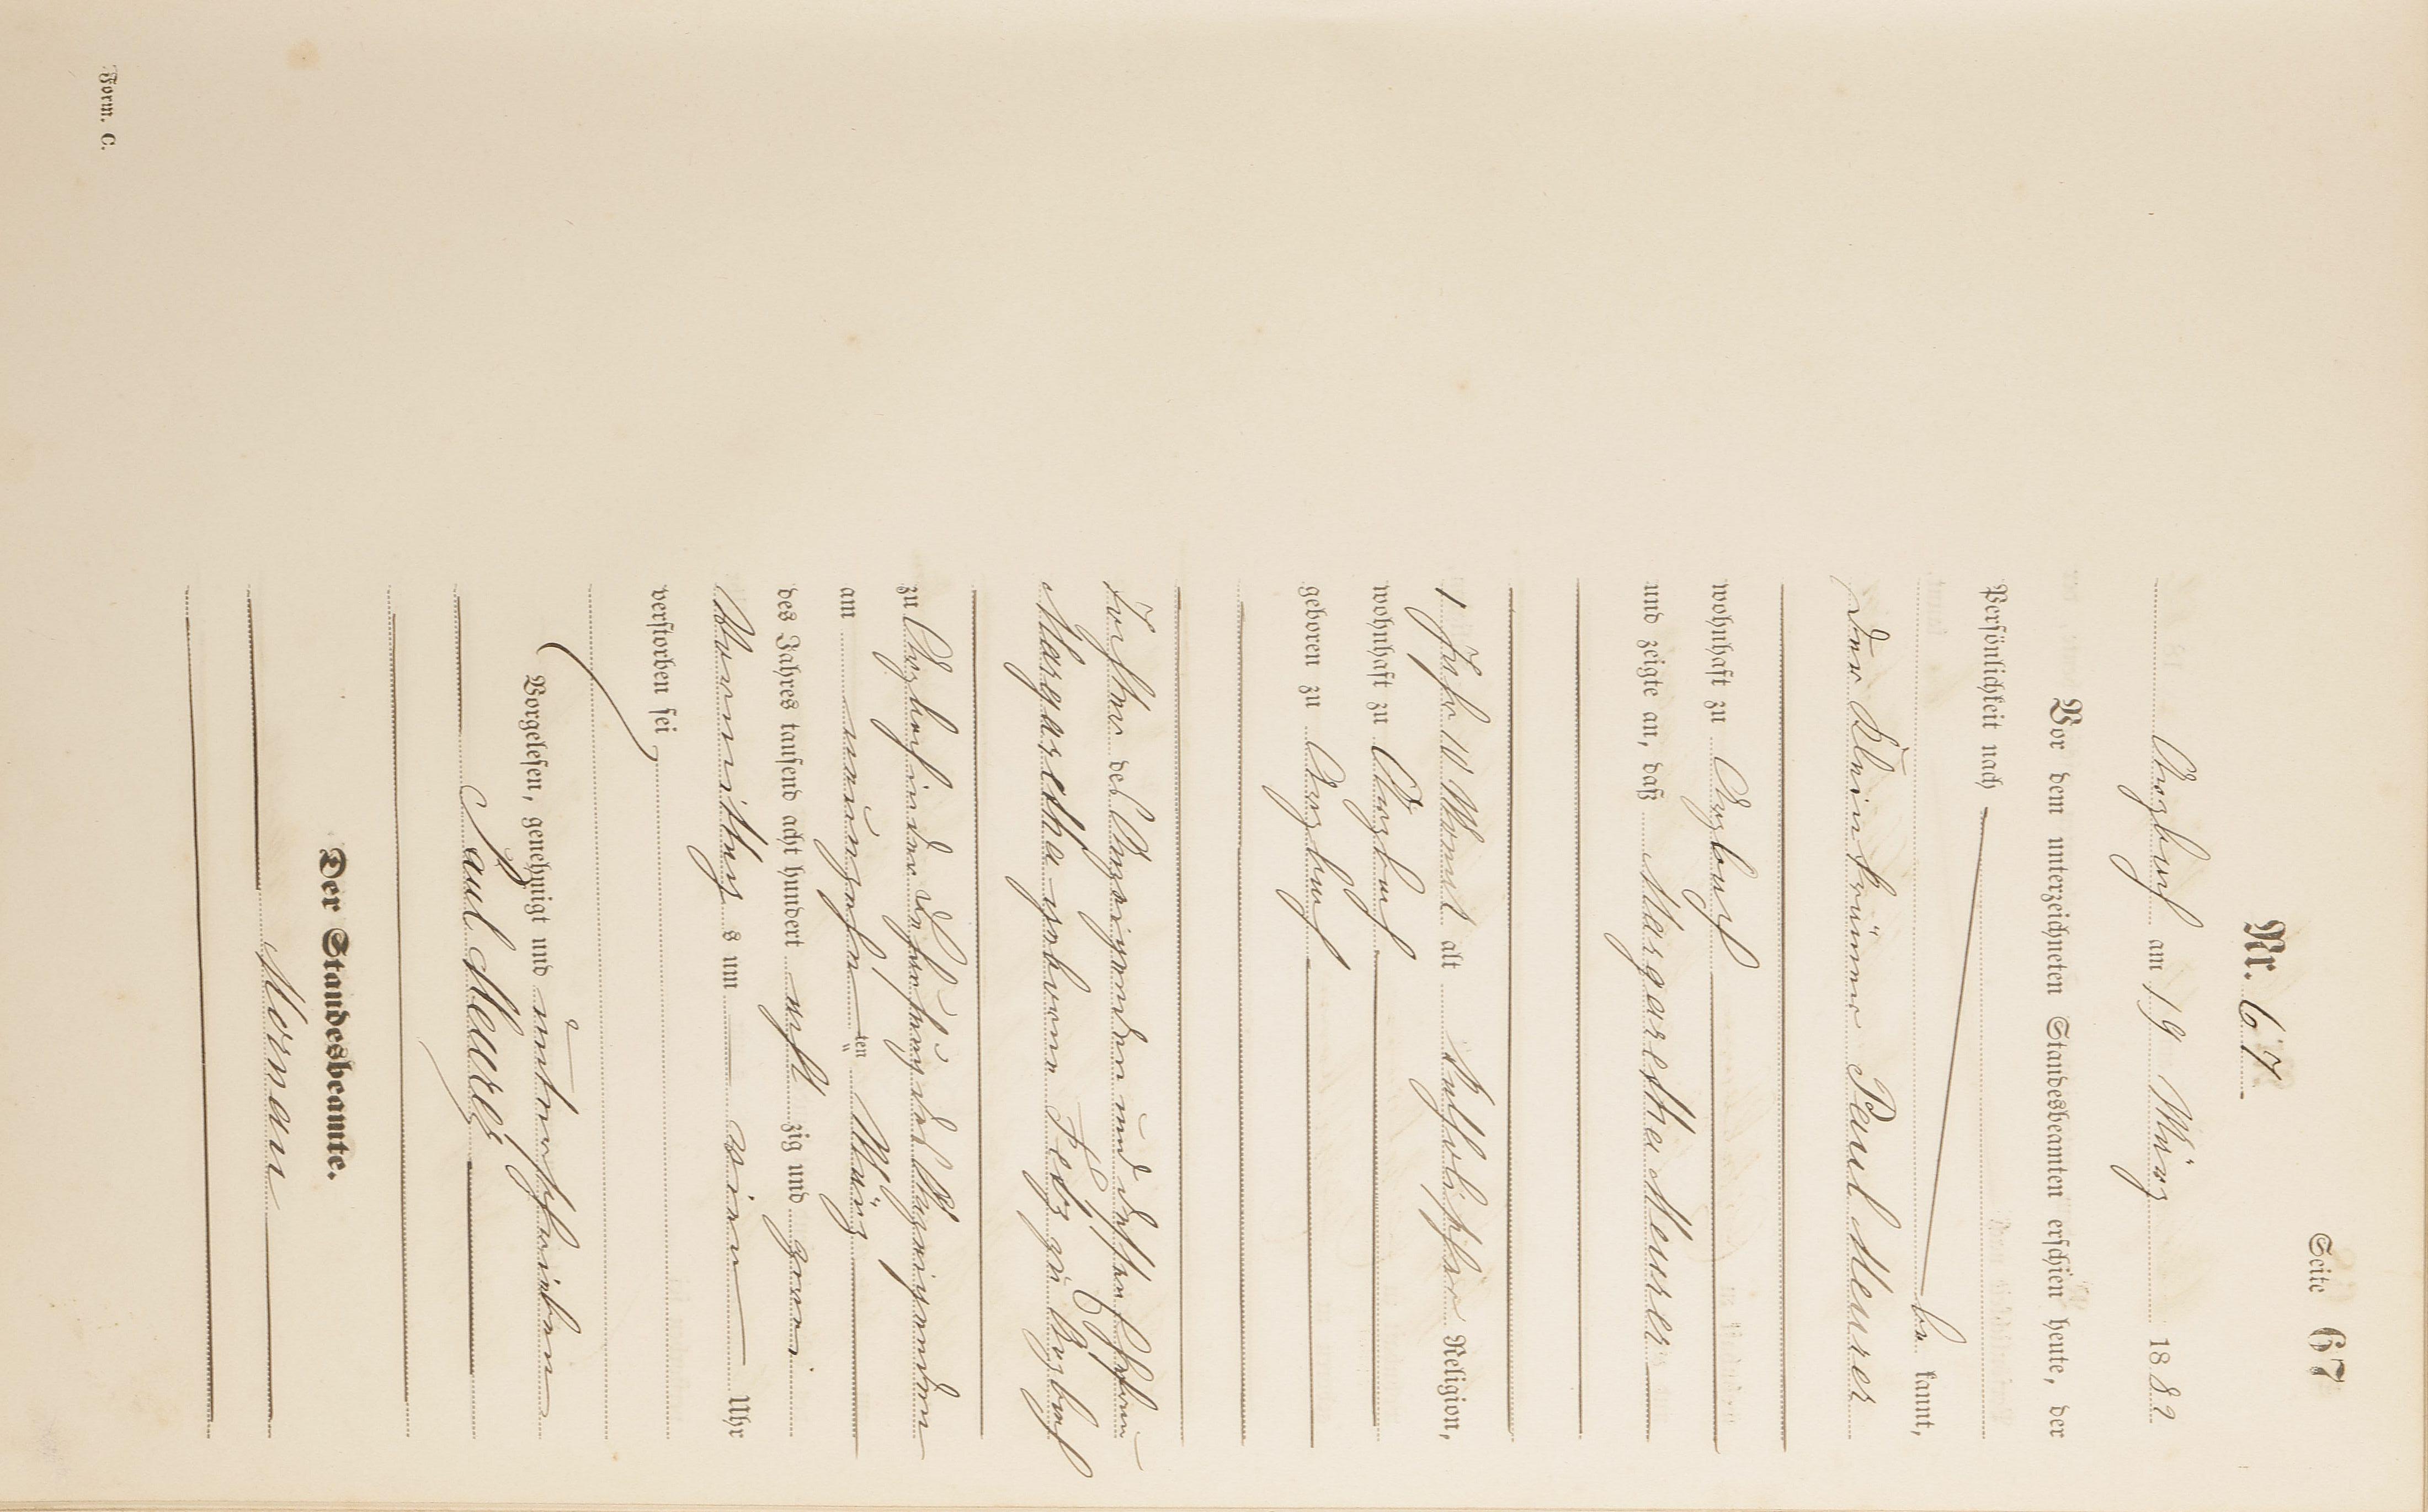 Seite 67
Nr. 67
Arzbach am 19 März 1882
Vor dem unterzeichneten Standesbeamten erschien heute, der
Persönlichkeit nach
be kannt,
der Kleinkrämer Paul Meurer
wohnhaft zu Arzbach
und zeigte an, daß Margaretha Meurer
1 Jahr 10 Monat alt katholischer Religion,
wohnhaft zu Arzbach
geboren zu Arzbach
Tochter des Anzeigenden und dessen Ehefrau
Margaretha geborene Fetz zu Arzbach
zu Arzbach in der Behausung des Anzeigenden
am neunzehn ten März
des Jahres tausend acht hundert acht zig und zwei
Vormittags um vier Uhr
verstorben sei
Vorgelesen, genehmigt und unterschrieben
Paul Meurer
Der Standesbeamte.
Form. C.